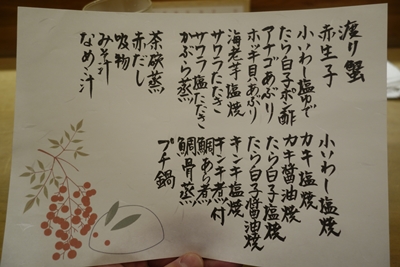 渡り蟹
赤生子
小いわし塩ゆで
たら白子ポン酢
アナゴあぶり
ホッキ貝あぶり
海老芋塩焼
サワラたたき
サワラ塩たたき
かぶら蒸
茶碗蒸
赤だし
吸物
みそ汁
なめこ汁
小いわし塩焼
カキ塩焼
カキ醤油焼
たら白子塩焼
たら白子醤油焼
キンキ塩焼
キンキ煮付
鯛あら煮
鯛骨蒸
プチ鍋